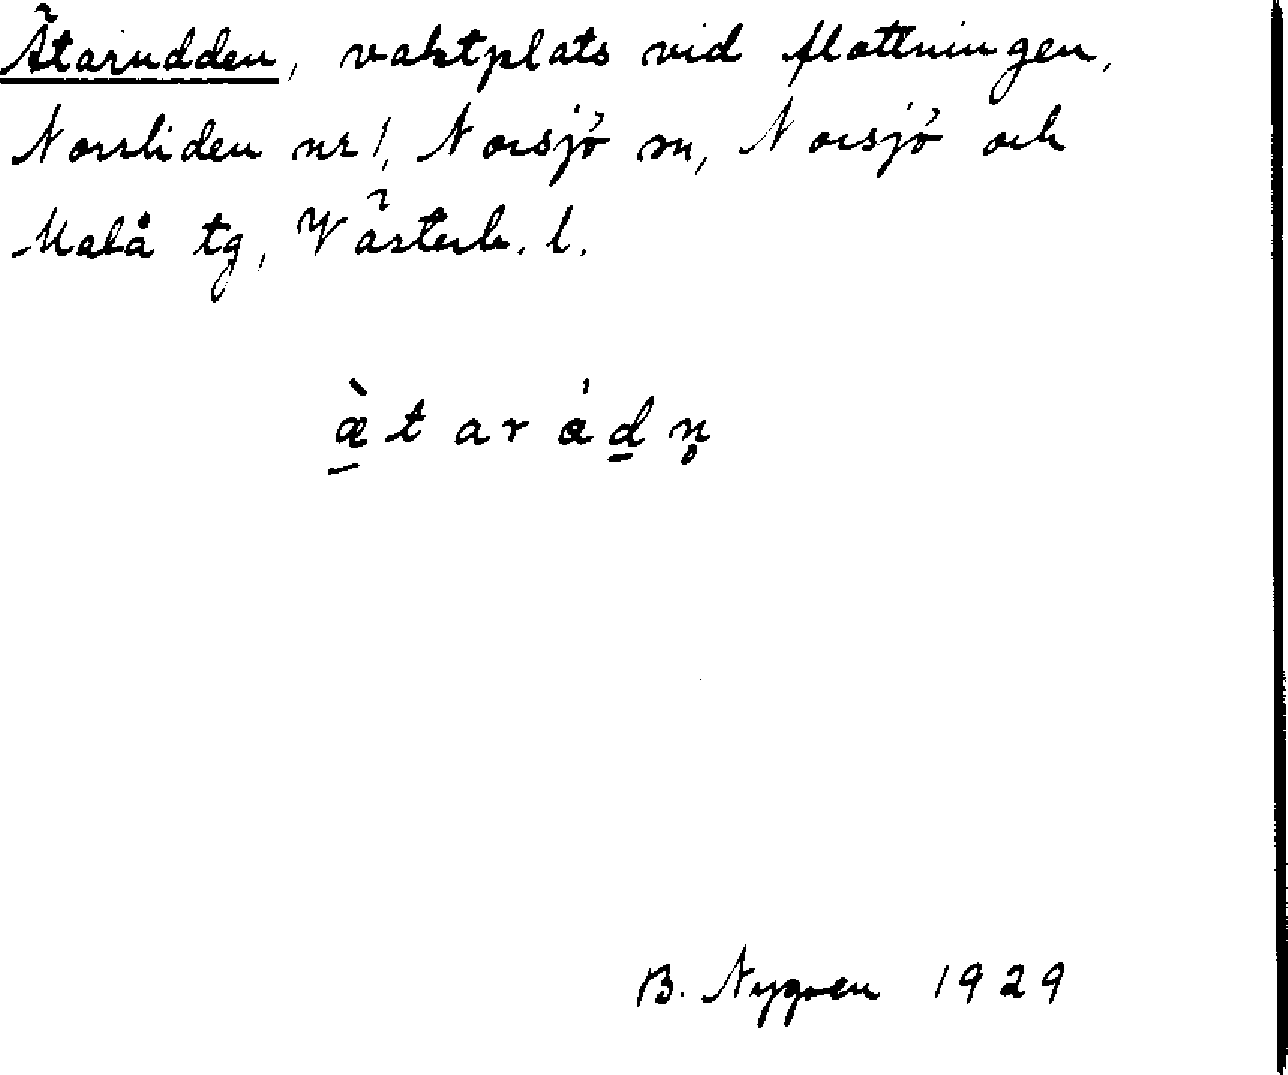 Ätarudden, vaktplats vid flottningen,
Norrliden nr 1, Norsjö sn, Norsjö och
Malå tg, Västerb. l.
æ̠̀ t a r á d̠ n̥
B. Nygren 1929